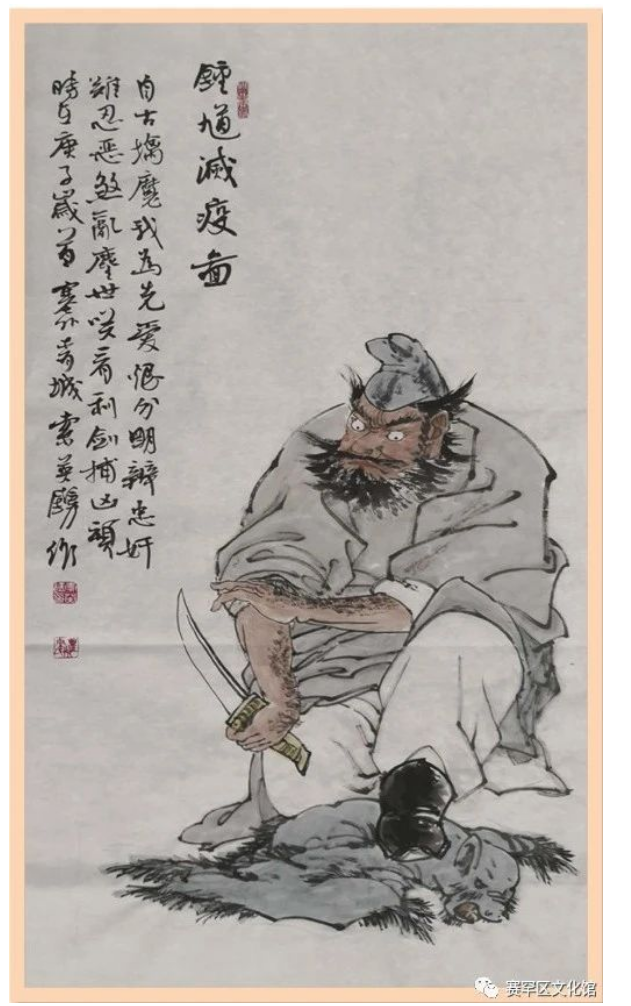 鍾馗滅疫圖
自古擒魔我為先愛恨分明辨忠奸
難忍惡煞亂塵世咲看利劍捕凶頑
時在庚子歲首塞外青城索英作
赛罕区文化馆